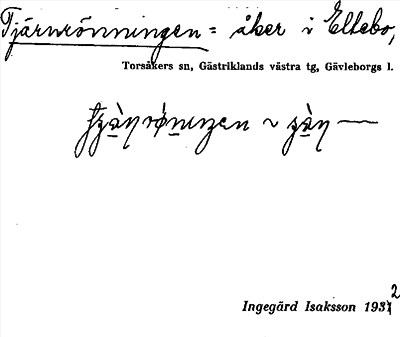 Tjärnrönningen = åker i Ellebo,
Torsåkers sn, Gästriklands västra tg, Gävleborgs l.
Ingegärd Isaksson 1932